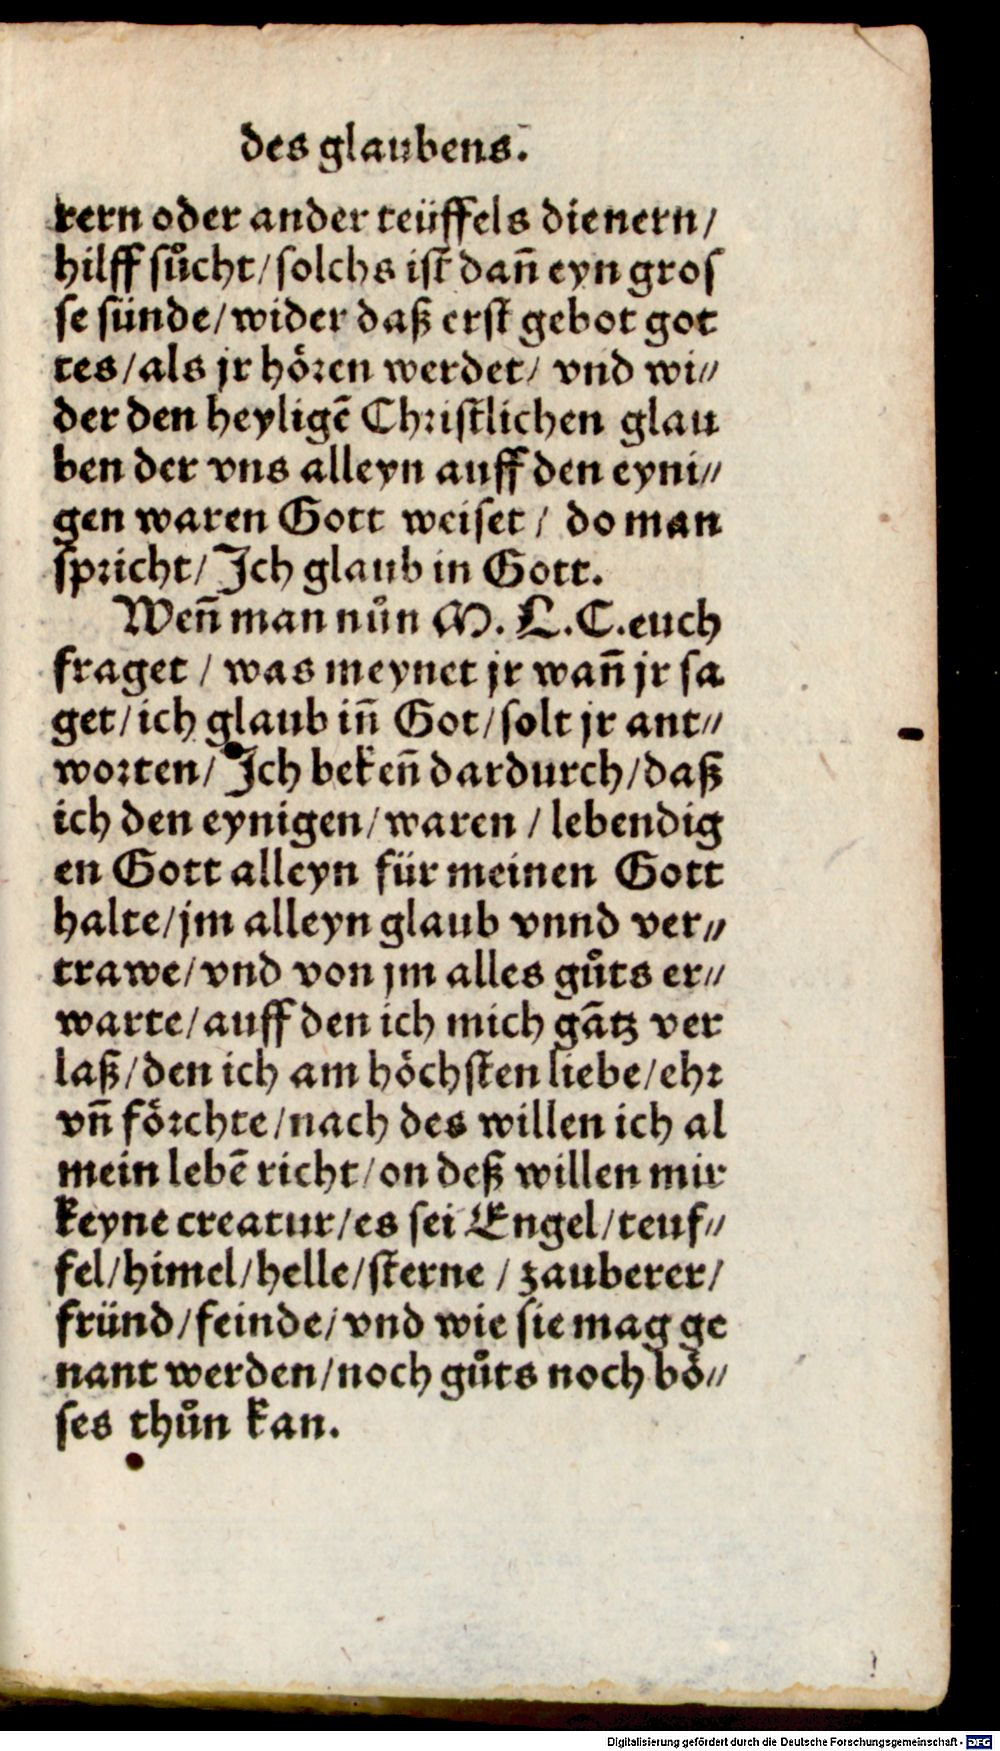 des glaubens.
rern oder ander teüffels dienern/
hilff sůcht/solchs ist dañ eyn gros
se sünde/wider daß erst gebot got
tes/als jr hören werdet/ vnd wi⸗
der den heyligē Christlichen glau
ben der vns alleyn auff den eyni⸗
gen waren Gott weiset/ do man
spricht/Ich glaub in Gott.
Weñ man nůn M. L. C. euch
fraget / was meynet jr wañ jr sa
get/ich glaub iñ Got/solt jr ant⸗
worten/Ich bekeñ dardurch/daß
ich den eynigen/waren / lebendig
en Gott alleyn für meinen Gott
halte/jm alleyn glaub vnnd ver⸗
trawe/vnd von jm alles gůts er⸗
warte/auff den ich mich gātz ver
laß/den ich am höchsten liebe/ehr
vñ förchte/nach des willen ich al
mein lebē richt/on deß willen mir
keyne creatur/es sei Engel/teuf⸗
fel/himel/helle/sterne / zauberer/
fründ/feinde/vnd wie sie mag ge
nant werden/noch gůts noch bö⸗
ses thůn kan.
Digitalisierung gefördert durch die Deutsche Forschungsgemeinschaft - DFG